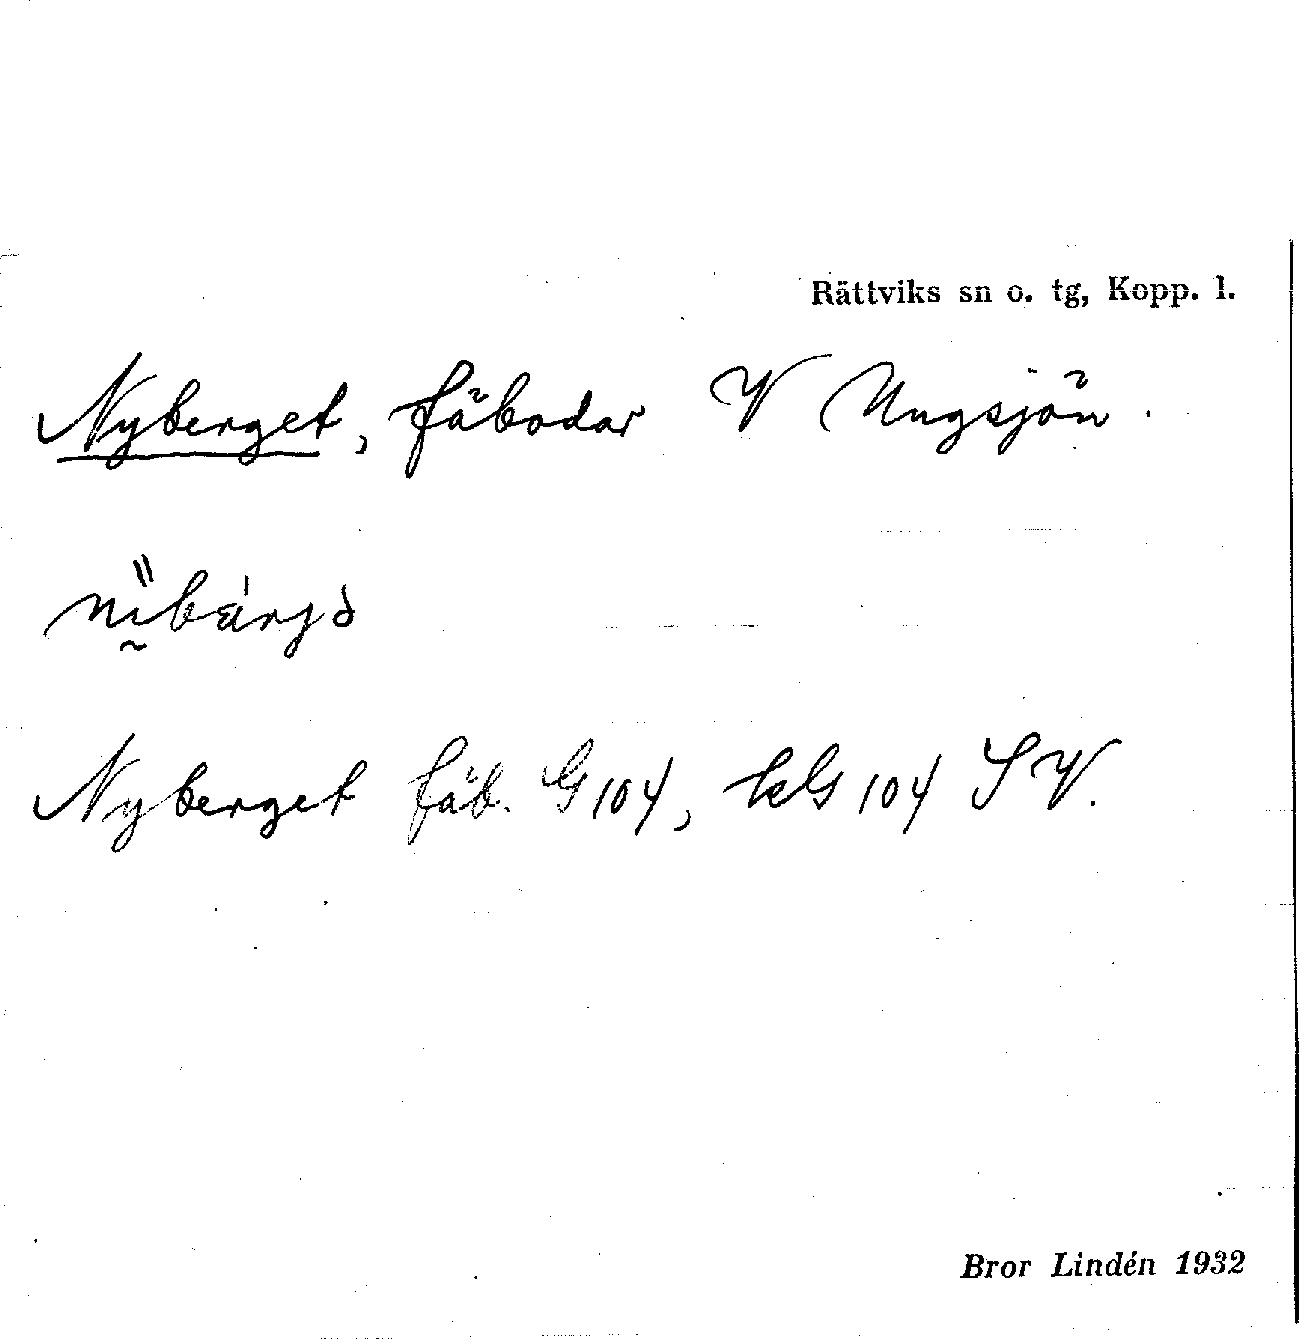 Rättviks sn o. tg, Kopp. l.
Nyberget, fäbodar V Ungsjön.
Nyberget fäb. G 104, kls 104 SV.
Bror Lindén 1932